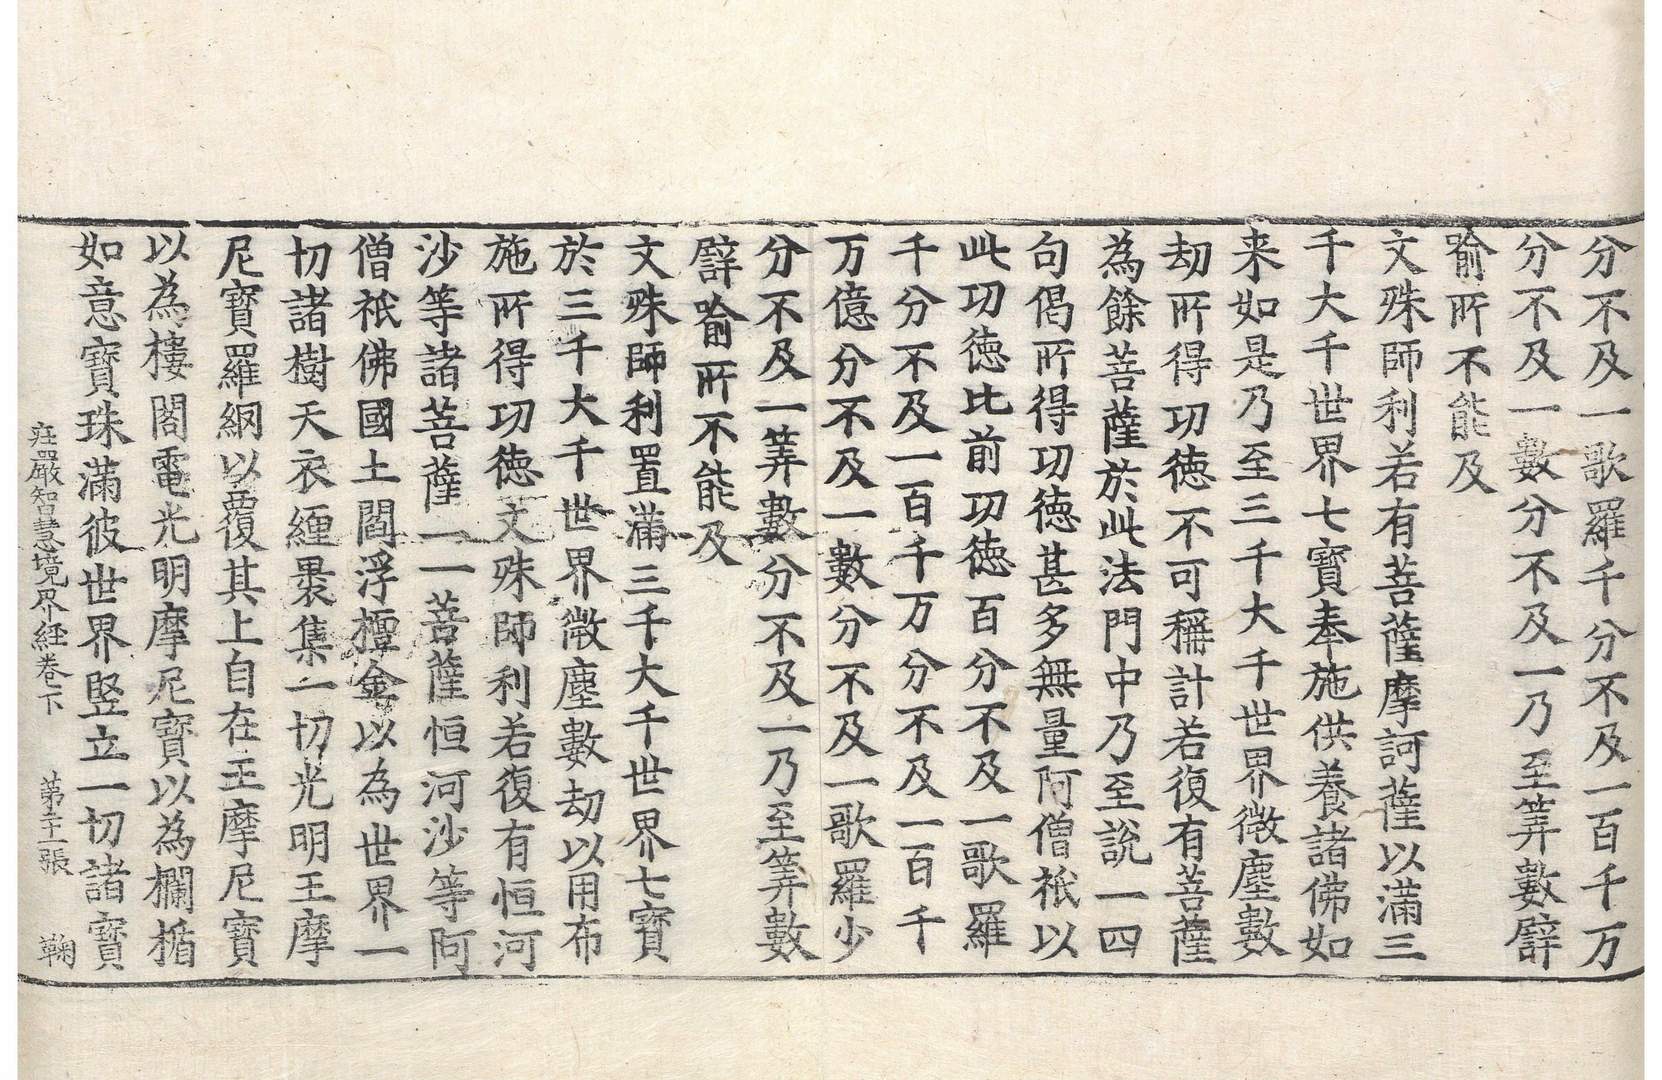 分不及一歌羅千分不及一百千万
分不及一數分不及一乃至筭數譬
喻所不能及
文殊師利若有菩薩摩訶薩以滿三
千大千世界七寶奉施供養諸佛如
来如是乃至三千大千世界微塵數
劫所得功徳不可稱計若復有菩薩
為餘菩薩於此法門中乃至說一四
句偈所得功徳甚多無量阿僧祇以
此功徳比前功徳百分不及一歌羅
千分不及一百千万分不及一百千
万億分不及一數分不及一歌羅少
分不及一筭數分不及一乃至筭數
譬喻所不能及
文殊師利置滿三千大千世界七寶
於三千大千世界微塵數劫以用布
施所得功徳文殊師利若復有恒河
沙等諸菩薩一一菩薩恒河沙等阿
僧祇佛國土閻浮檀金以為世界一
切諸樹天衣纏裹集一切光明王摩
尼寶羅網以覆其上自在王摩尼寶
以為樓閣電光明摩尼寶以為欄楯
如意寶珠滿彼世界竪立一切諸寶
庄嚴智慧境界経卷下 第十二張 鞠